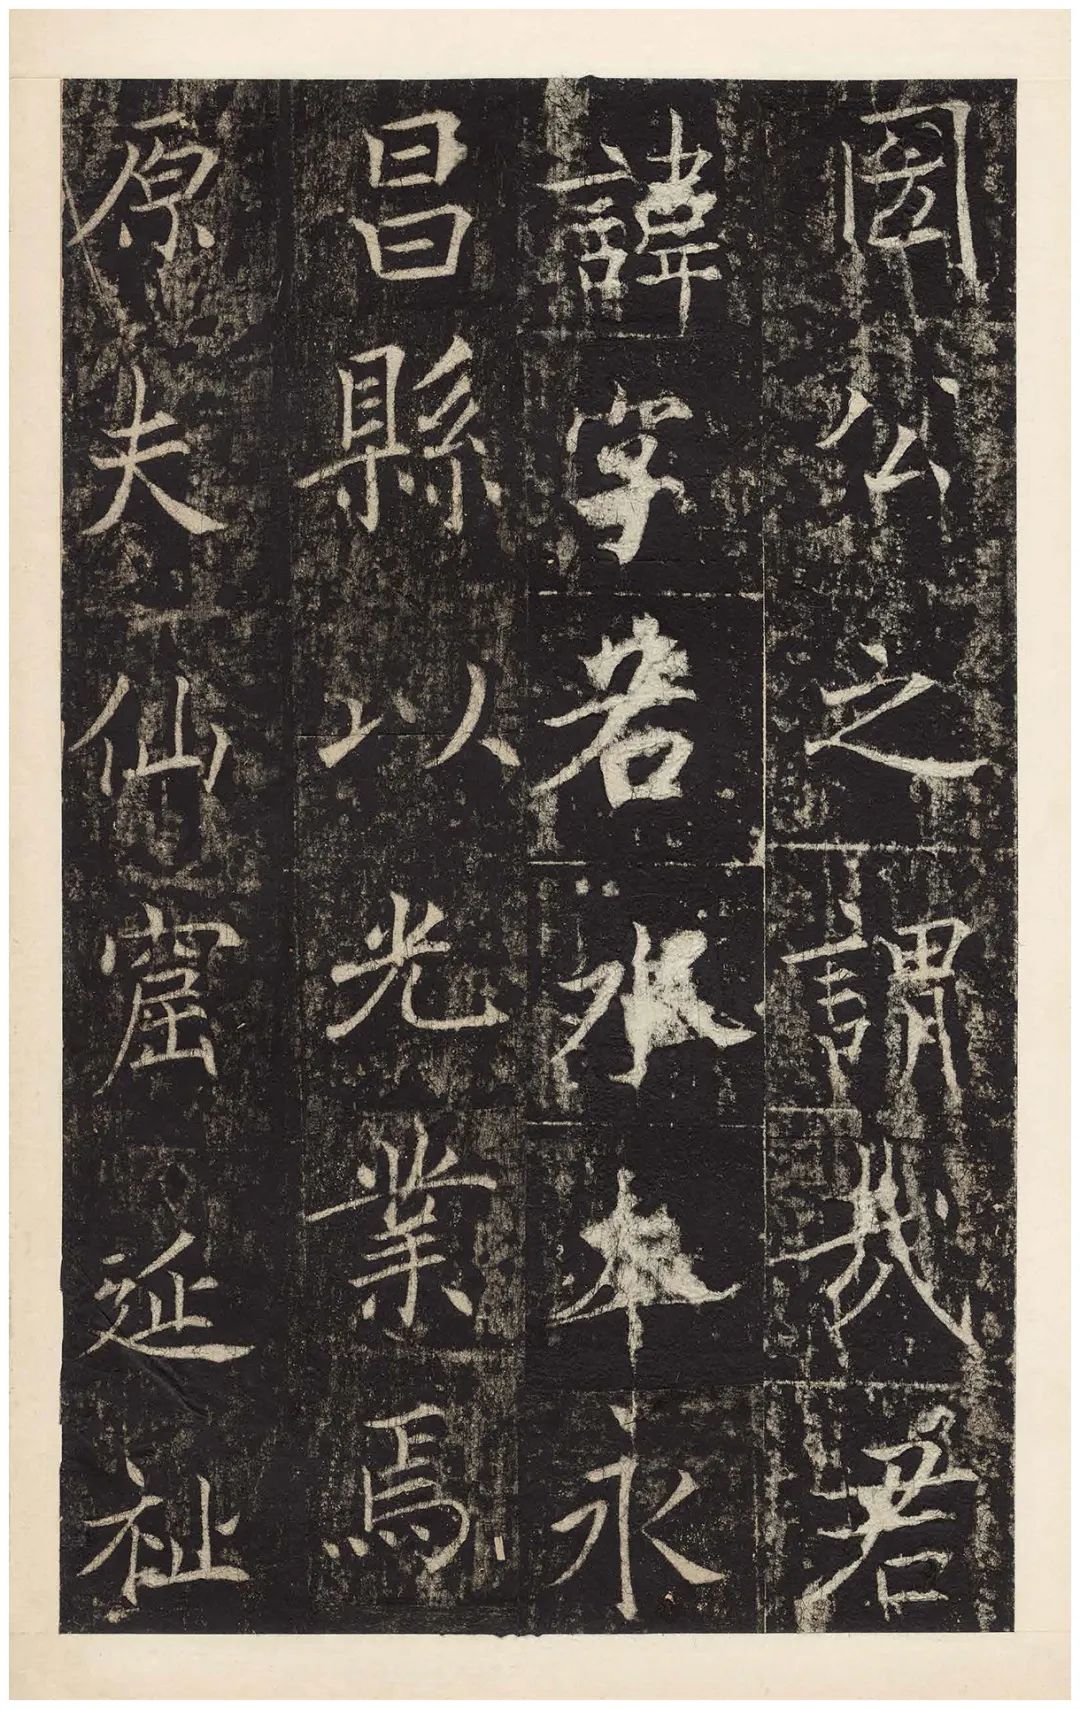 公之謂哉君
諱字若水本永
昌縣以光業焉
原夫仙窟延祉